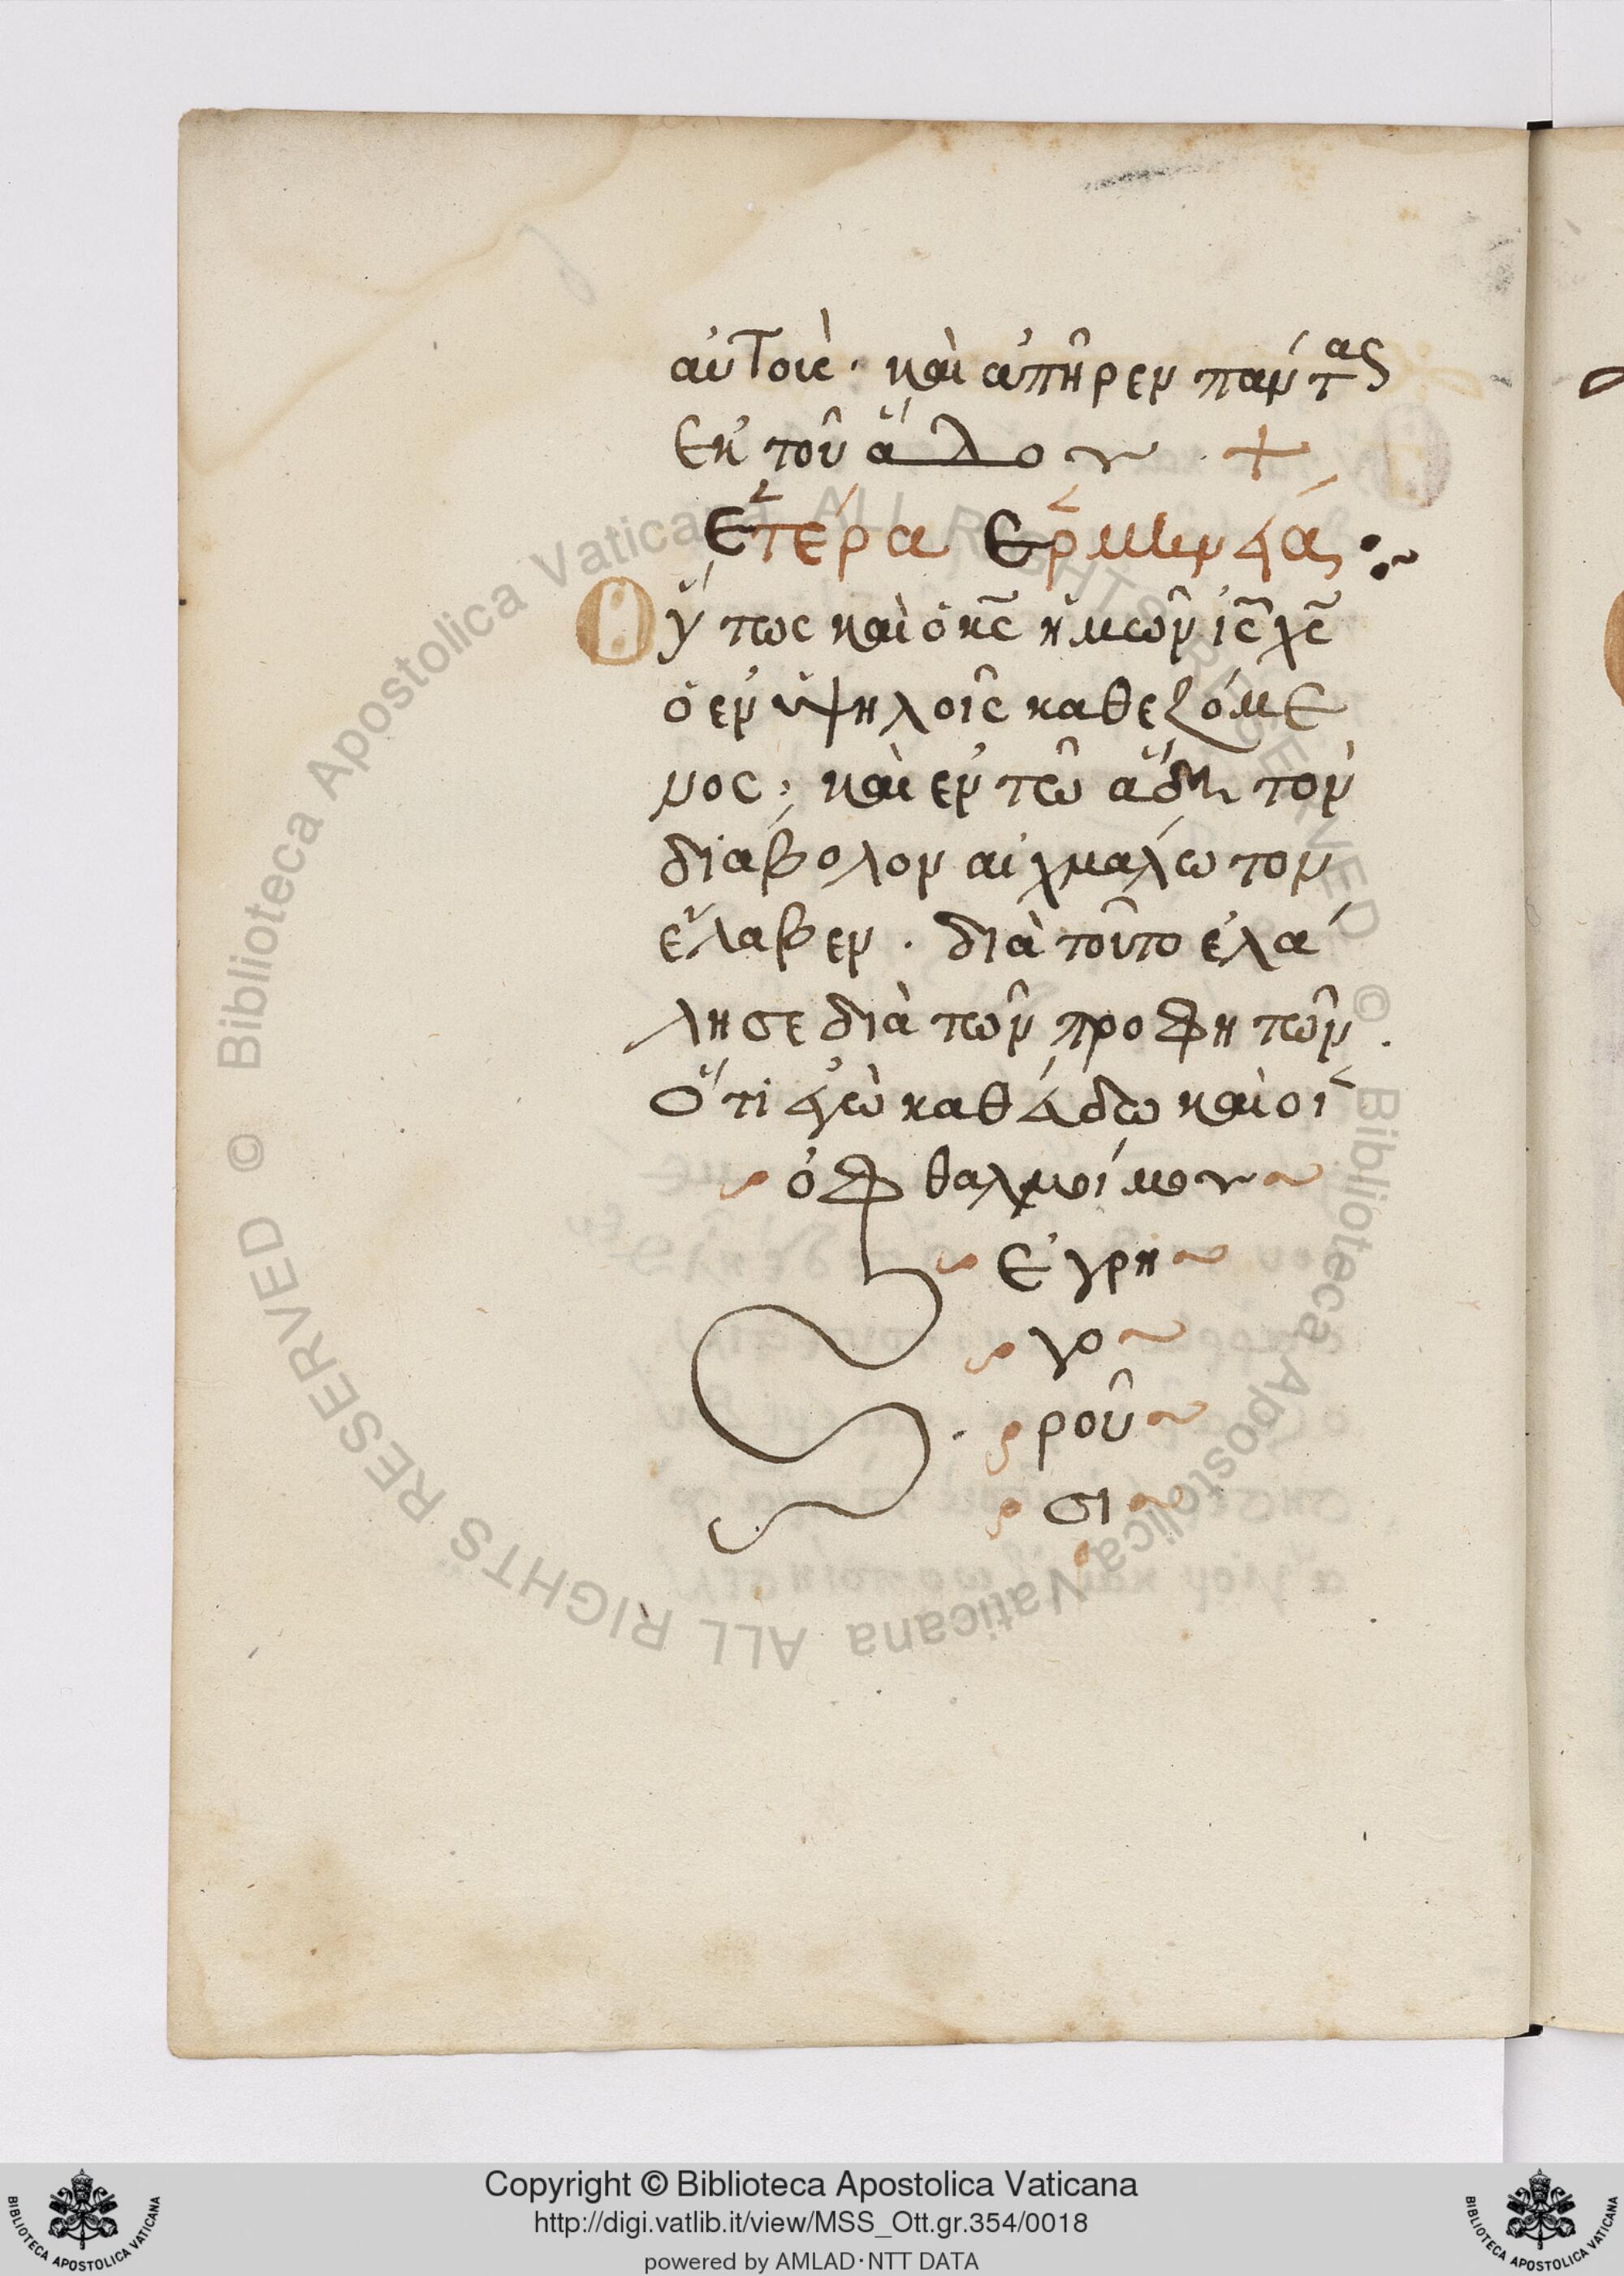 αὐτοὶς· καὶ ἀπῆρεν πάντας
ἐκ τοῦ ἅλου +
Ἑτέρα Ἑρμινεία :~
Οὕτως καὶ ὁ κς ἡμῶν ις χς
ὁ ἐν ὑψηλοῖς καθεζόμε
νος; καὶ ἐν τῶ ἅδη τὸν
διάβολον αἰχμάλωτον
ἔλαβεν. διὰ τοῦτο ἐλά
λησε διὰ τῶν προφητῶν.
Ὅτι ἐγὼ καθεύδω καὶ οἱ
ὀφθαλμοί μου
ἐγρη
γο
ροῦ
σι
© Biblioteca Apostolica Vaticana ALL RIGHTS RESERVED © Biblioteca Apostolica Vaticana ALL RIGHTS RESERVED
Copyright © Biblioteca Apostolica Vaticana
http://digi.vatlib.it/view/MSS_Ott.gr.354/0018
powered by AMLAD·NTT DATA
BIBLIOTECA APOSTOLICA VATICANA
BIBLIOTECA APOSTOLICA VATICANA